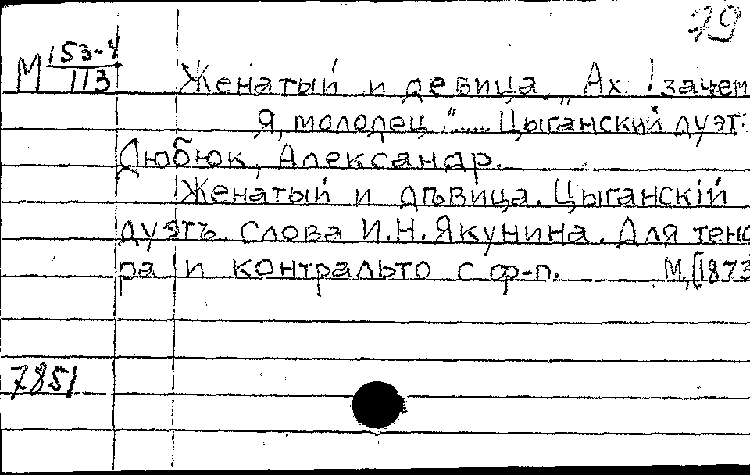 79
М 153-4/113 Женатый и девица „Ах! зачем
я, молодец"..... Цыганский дуэт.
Дюбюк, Александр.
Женатый и дѣвица. Цыганскій
дуэтъ. Слова И.Н.Якунина. Для тено
ра и контральто с ф-п. М,[1873
7851